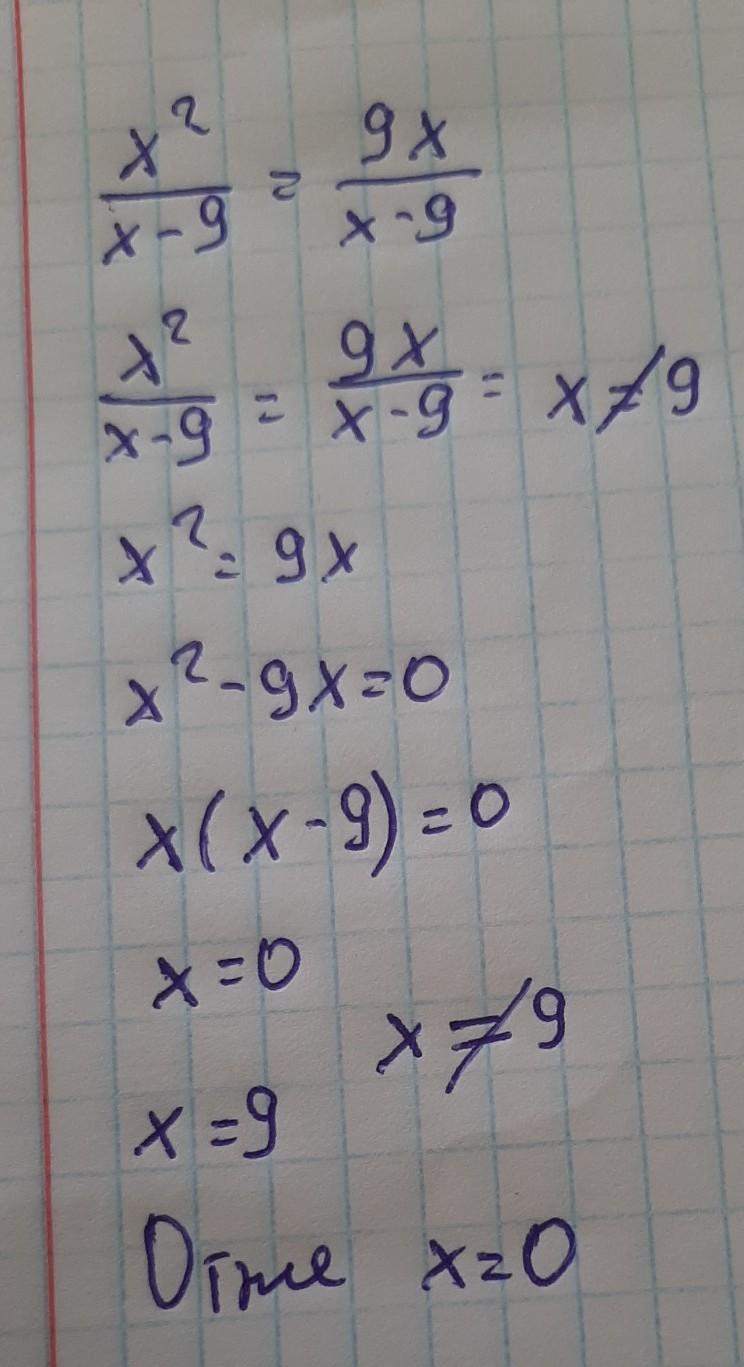 x²/(x-9) = 9x/(x-9)
x²/(x-9) = 9x/(x-9) = x≠9
x² = 9x
x²-9x=0
x(x-9)=0
x=0
x≠9
x=9
Отже x=0